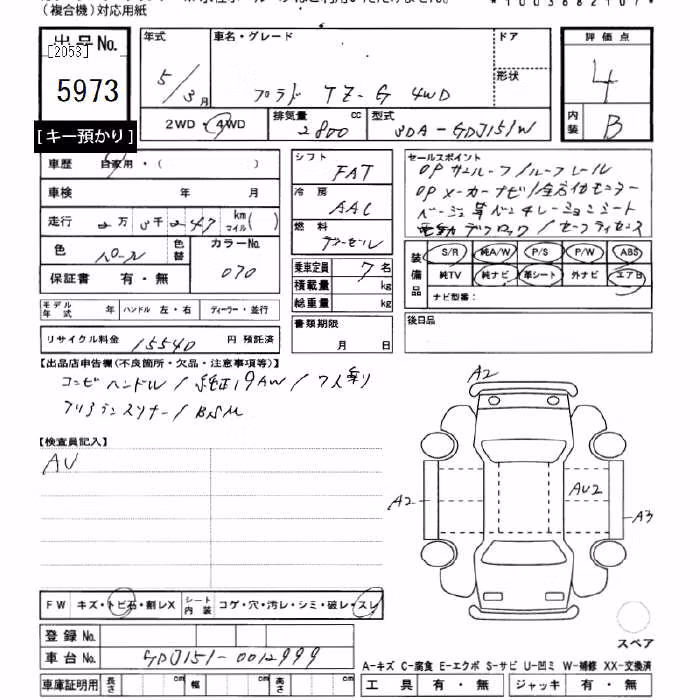 (複合機)対応用紙
出品No.
[2053]
5973
[キー預かり]
年式
5/3月
車名・グレード
プラド TZ-G 4WD
ドア
形状
評価点
4
内装
B
2WD・4WD
排気量 2800 cc
型式 3DA-GDJ151W
車歴 自家用・( )
車検 年 月
走行 2万5千247 km マイル( )
色 パール
色替
カラーNo. 070
保証書 有・無
モデル年式 年 ハンドル 左・右 ディーラー・並行
リサイクル料金 15540 円 預託済
シフト FAT
冷房 AAC
燃料 ディーゼル
乗車定員 7名
積載量 kg
総重量 kg
書類期限
月 日
セールスポイント
OP サンルーフ/ルーフレール
OP メーカーナビ/全方位モニター
ベージュ革ベンチレーションシート
電動デフロック/セーフティセンス
装備品
S/R 純A/W P/S P/W ABS
純TV 純ナビ 革シート 外ナビ エアB
ナビ型番:
後日品
【出品店申告欄(不良箇所・欠品・注意事項等)】
コンビハンドル/純正19AW/7人乗り
クリアランスソナー/BSM
【検査員記入】
AU
A2
A2
AU2
A3
スペア
FW キズ・トビ石・割レX シート内装 コゲ・穴・汚レ・シミ・破レ・スレ
登録No.
車台No. GDJ151-0012999
車庫証明用 長さ cm 幅 cm 高さ cm
A-キズ C-腐食 E-エクボ S-サビ U-凹ミ W-補修 XX-交換済
工具 有・無 ジャッキ 有・無